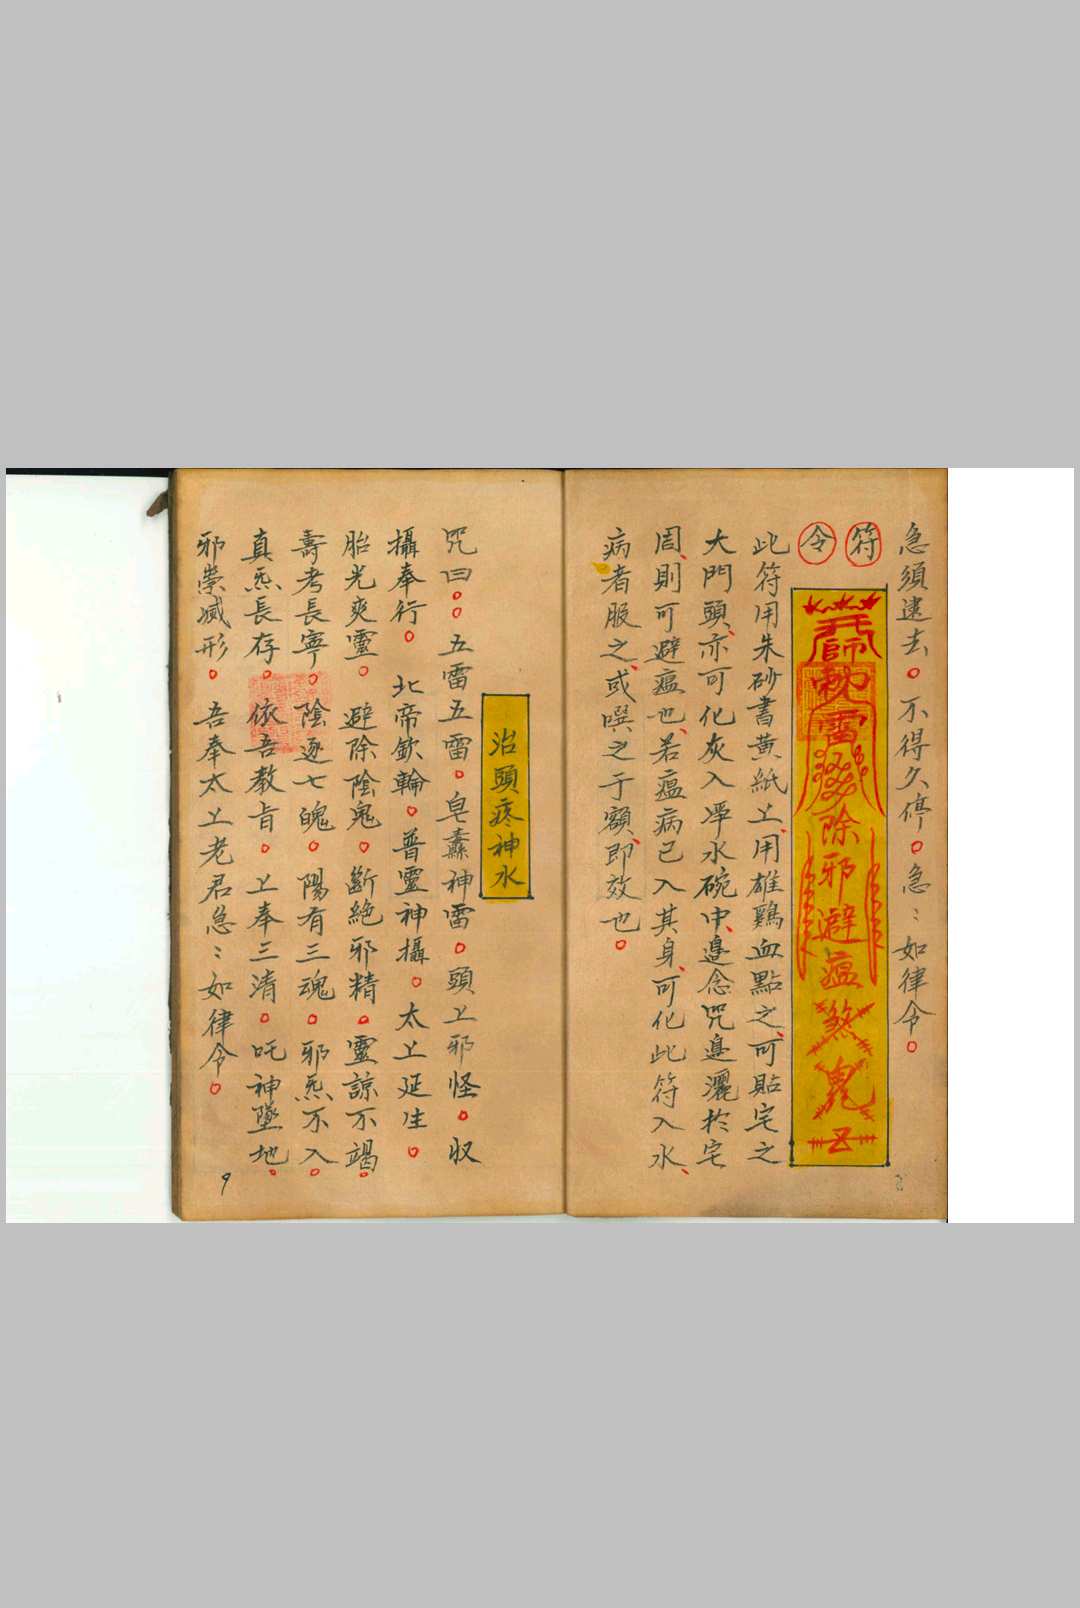 急須速去。不得久停。急：如律令。
符
令
師勅雷除邪避瘟煞鬼
此符用朱砂書黃紙上、用雄鷄血點之、可貼宅之
大門頭、亦可化灰入淨水碗中、邊念咒邊灑於宅
周、則可避瘟也、若瘟病已入其身、可化此符入水、
病者服之、或噀之于額、即效也。
治頭疼神水
咒曰。。五雷五雷。皂纛神雷。頭上邪怪。収
攝奉行。北帝欽輪。普靈神攝。太上延生。
胎光爽靈。避除陰鬼。斷絶邪精。靈諒不竭。
壽考長寧。陰逐七魄。陽有三魂。邪炁不入。
真炁長存。依吾教旨。上奉三清。吒神墜地。
邪祟滅形。吾奉太上老君急：如律令。
9